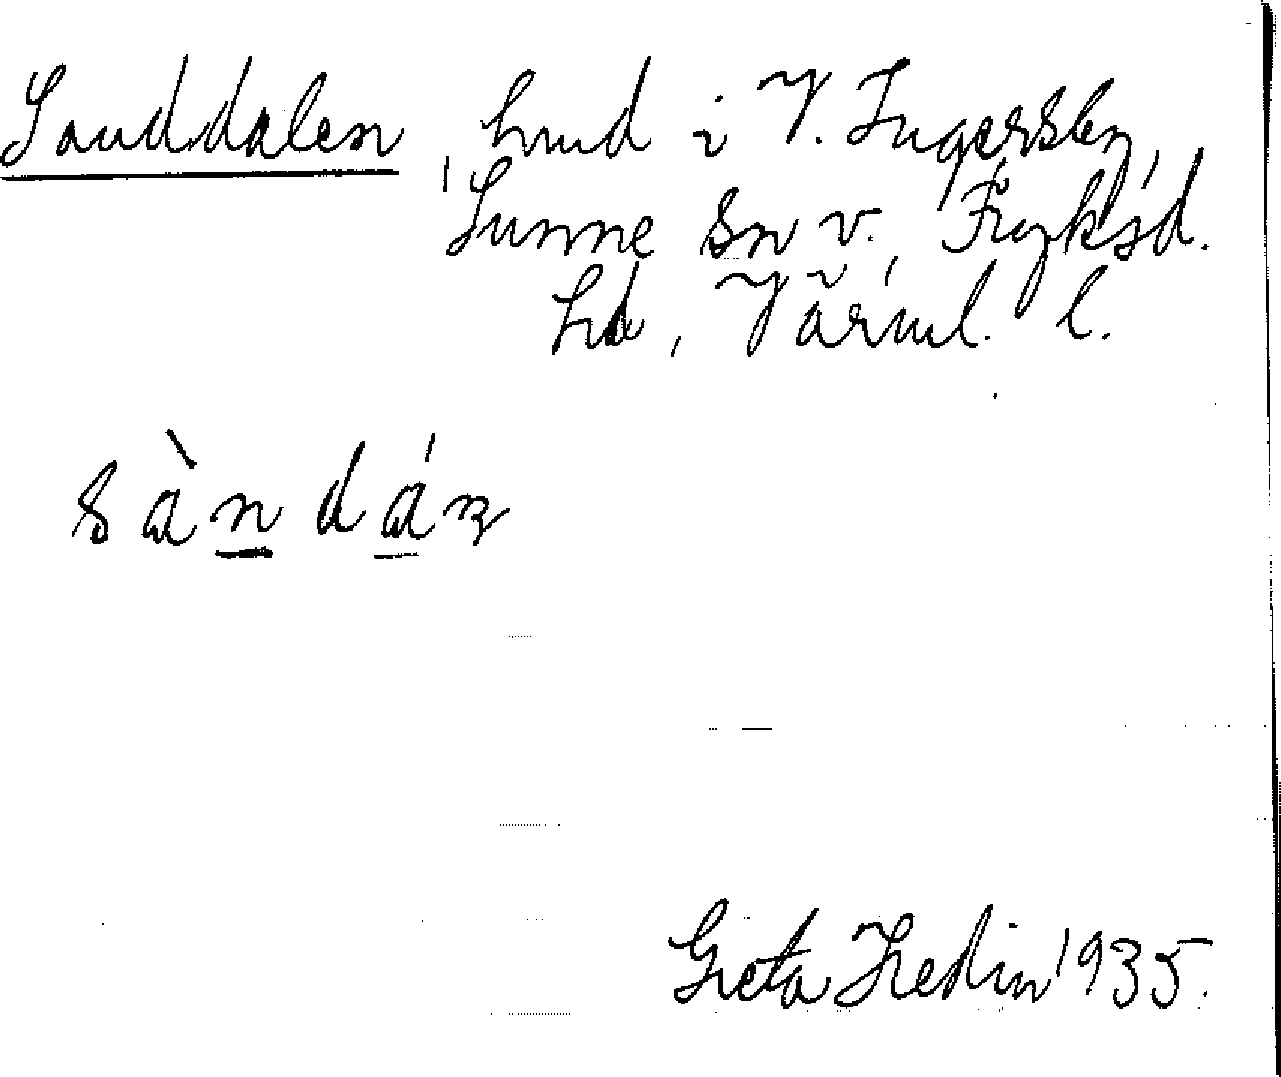 Sanddalen, hmd i V. Ingersby,
Sunne sn v. Fryksd.
hd, Värml. l.
sàndáɲ
Greta Hedin 1935.